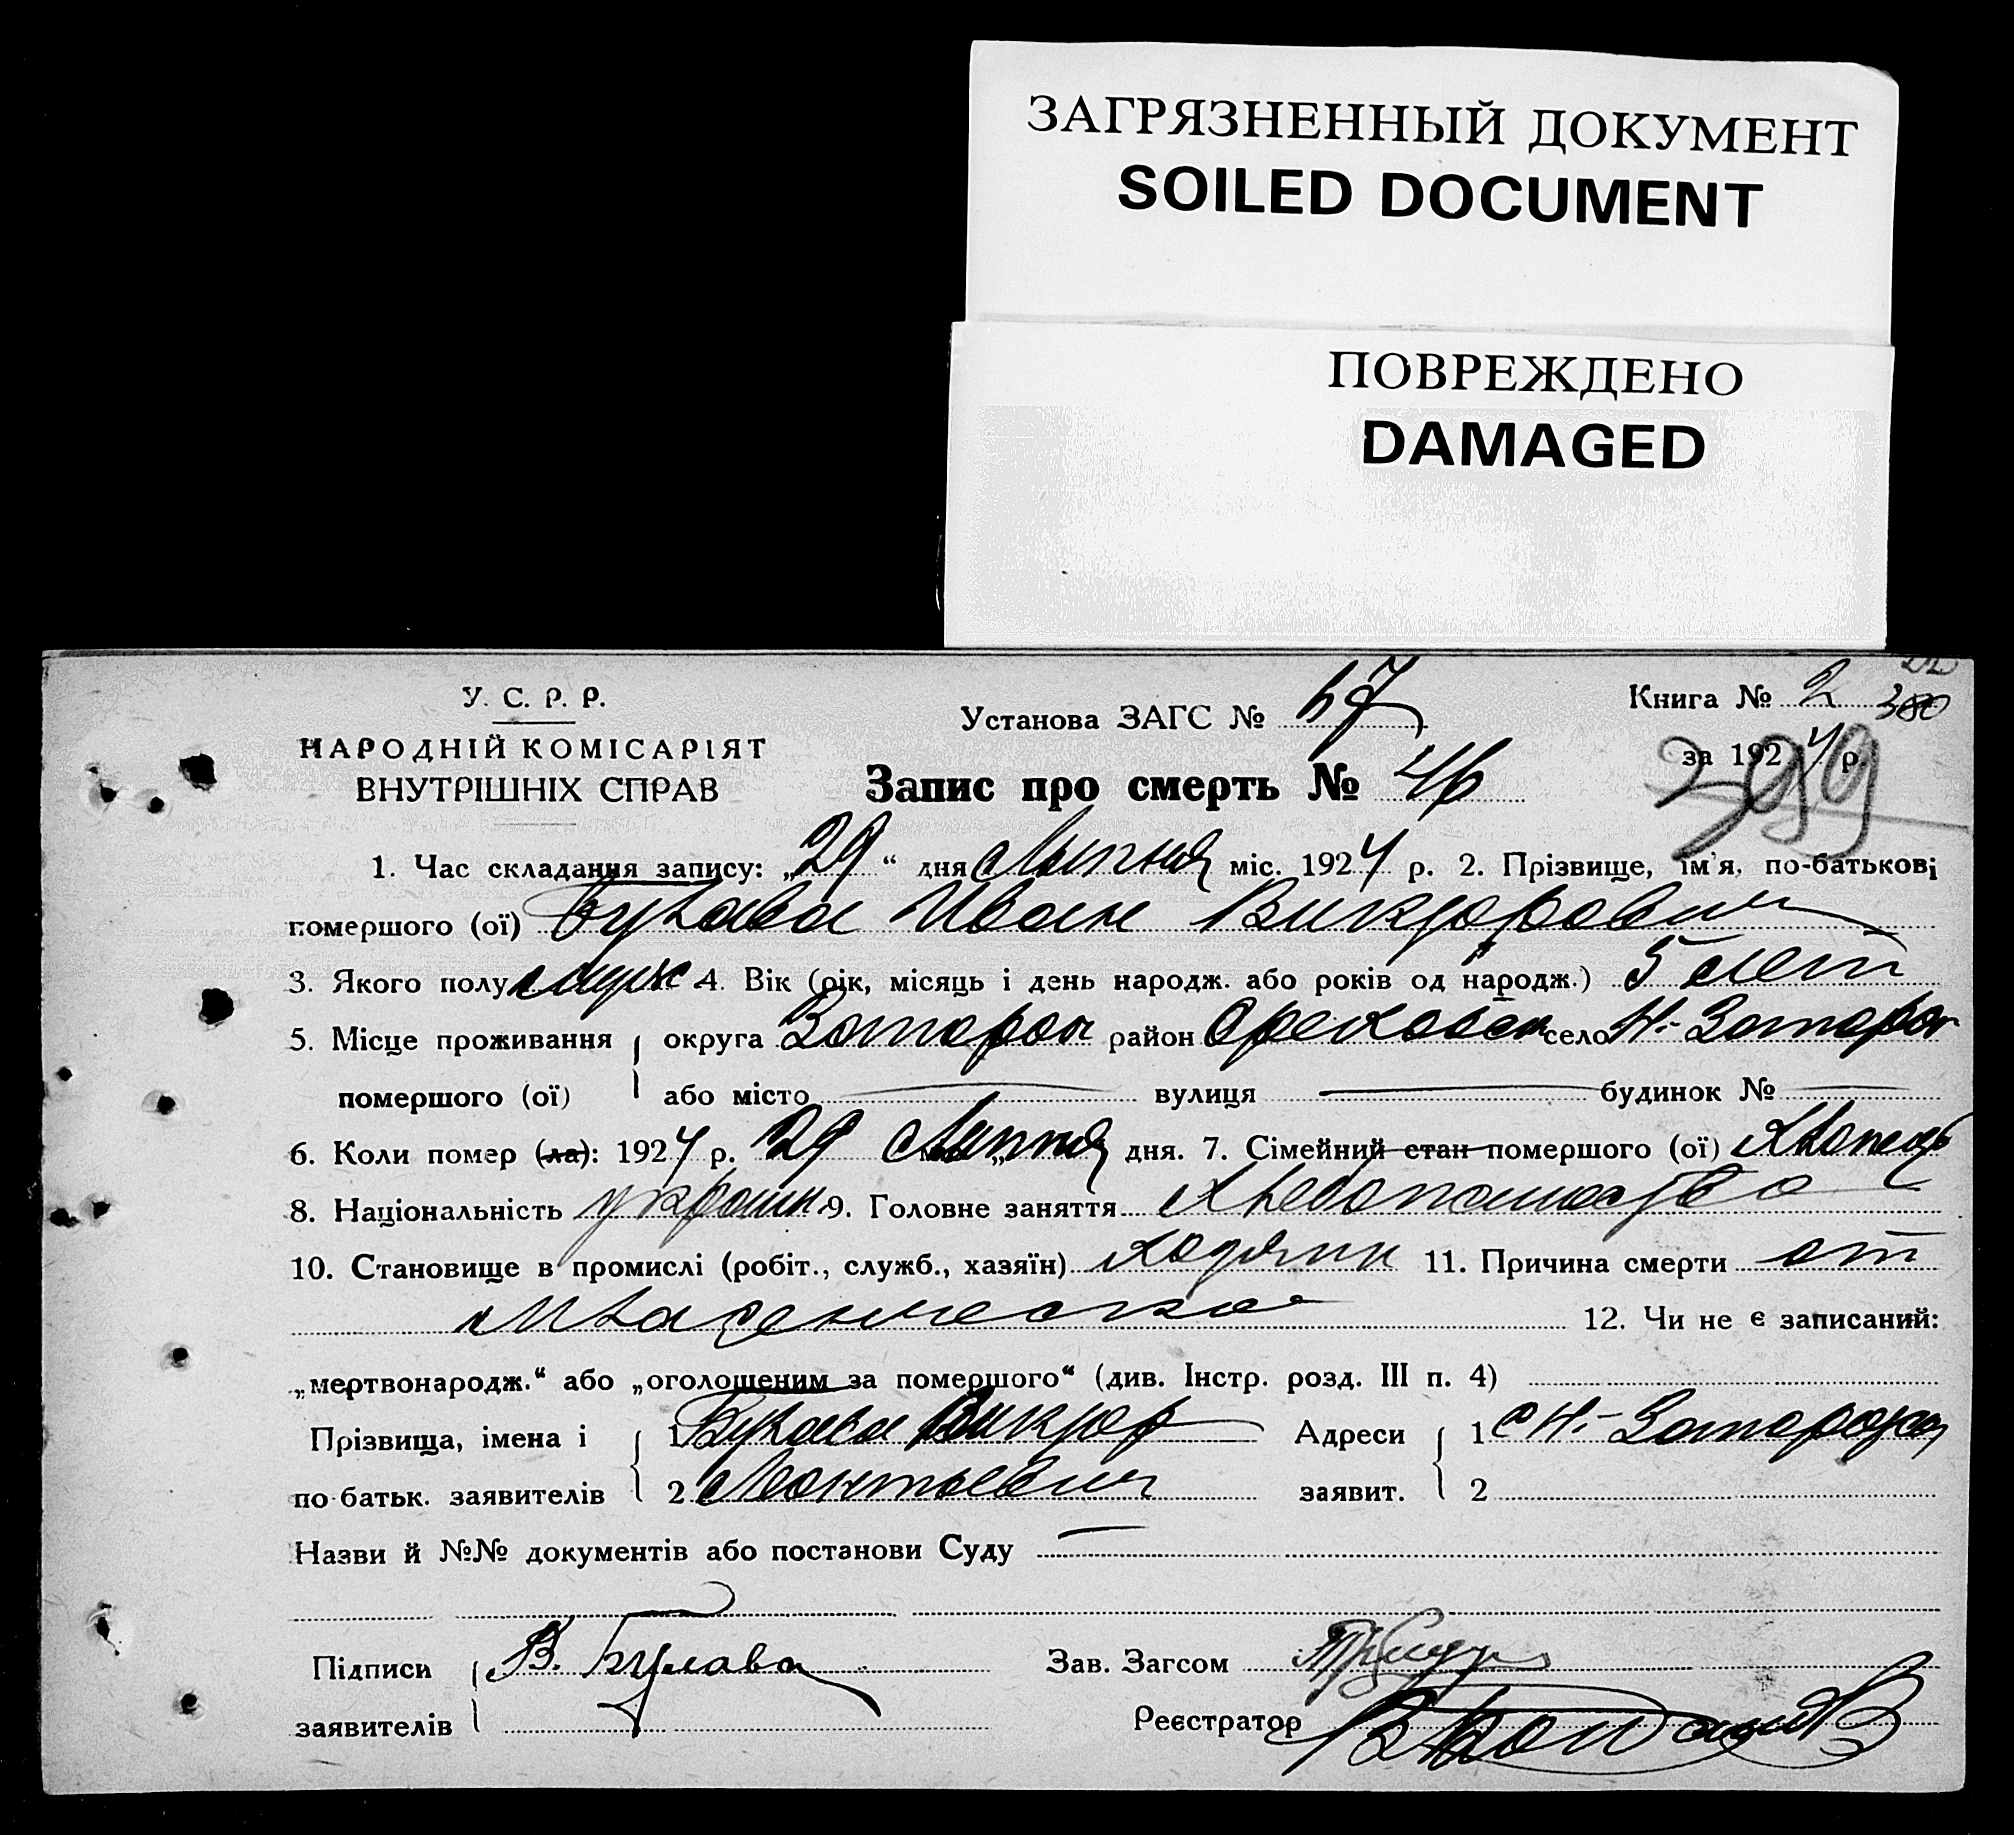 ЗАГРЯЗНЕННЫЙ ДОКУМЕНТ
SOILED DOCUMENT
ПОВРЕЖДЕНО
DAMAGED
У. С. Р. Р.
НАРОДНІЙ КОМІСАРІЯТ
ВНУТРІШНІХ СПРАВ
Установа ЗАГС №
Книга № 2
380
за 1924 р.
299
Запис про смерть № 46
1. Час складання запису: „29“ дня Липня міс. 1924 р. 2. Прізвище, ім'я, по-батькові
помершого (ої) Булава Иван Викторович
3. Якого полу муж 4. Вік (рік, місяць і день народж. або років од народж.) 5 лет
5. Місце проживання округа Запорож район Ореховск село Н-Запорож
помершого (ої) або місто вулиця будинок №
6. Коли помер (ла): 1924 р. 29 Липня дня. 7. Сімейний стан помершого (ої) Хлопець
8. Національність украин 9. Головне заняття Хлебопашество
10. Становище в промислі (робіт., служб., хазяїн) 11. Причина смерти от
12. Чи не є записаний:
„мертвонародж.“ або „оголошеним за помершого“ (див. Інстр. розд. III п. 4)
Прізвища, імена і 1 Булава Виктор Адреси 1 с Н-Запорожья
по батьк. заявителів 2 Леонтьевич заявит. 2
Назви й №№ документів або постанови Суду
Підписи В. Булава Зав. Загсом
заявителів Реєстратор